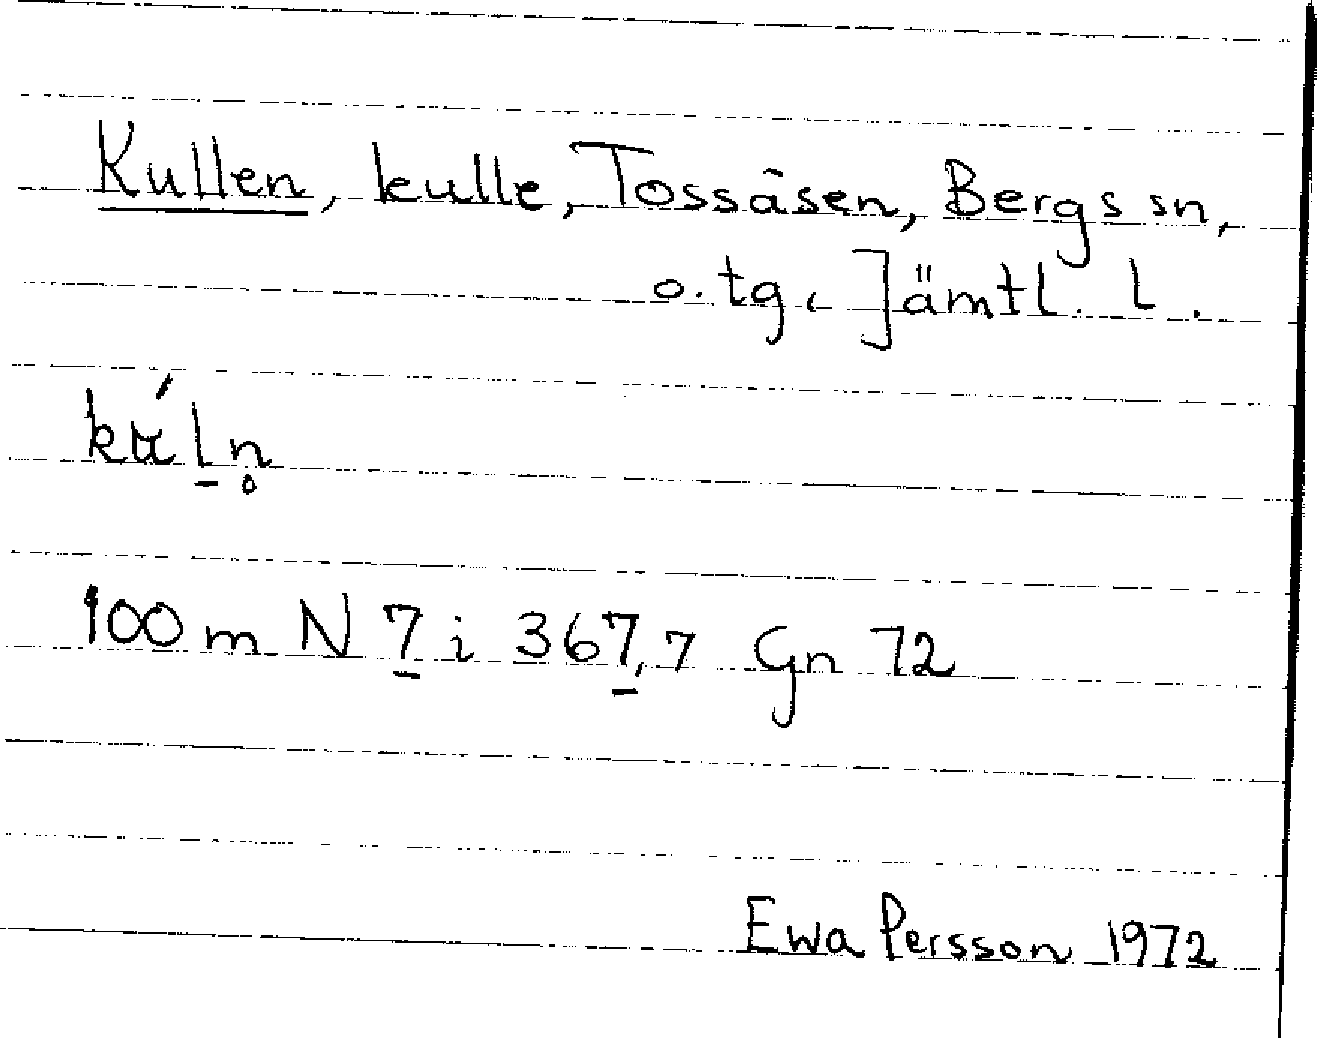 Kullen, kulle, Tossåsen, Bergs sn,
o. tg, Jämtl. L.
kʉ́l̲n̥
100 m N 7̲ i 367̲,7 Gn 72
Ewa Persson 1972